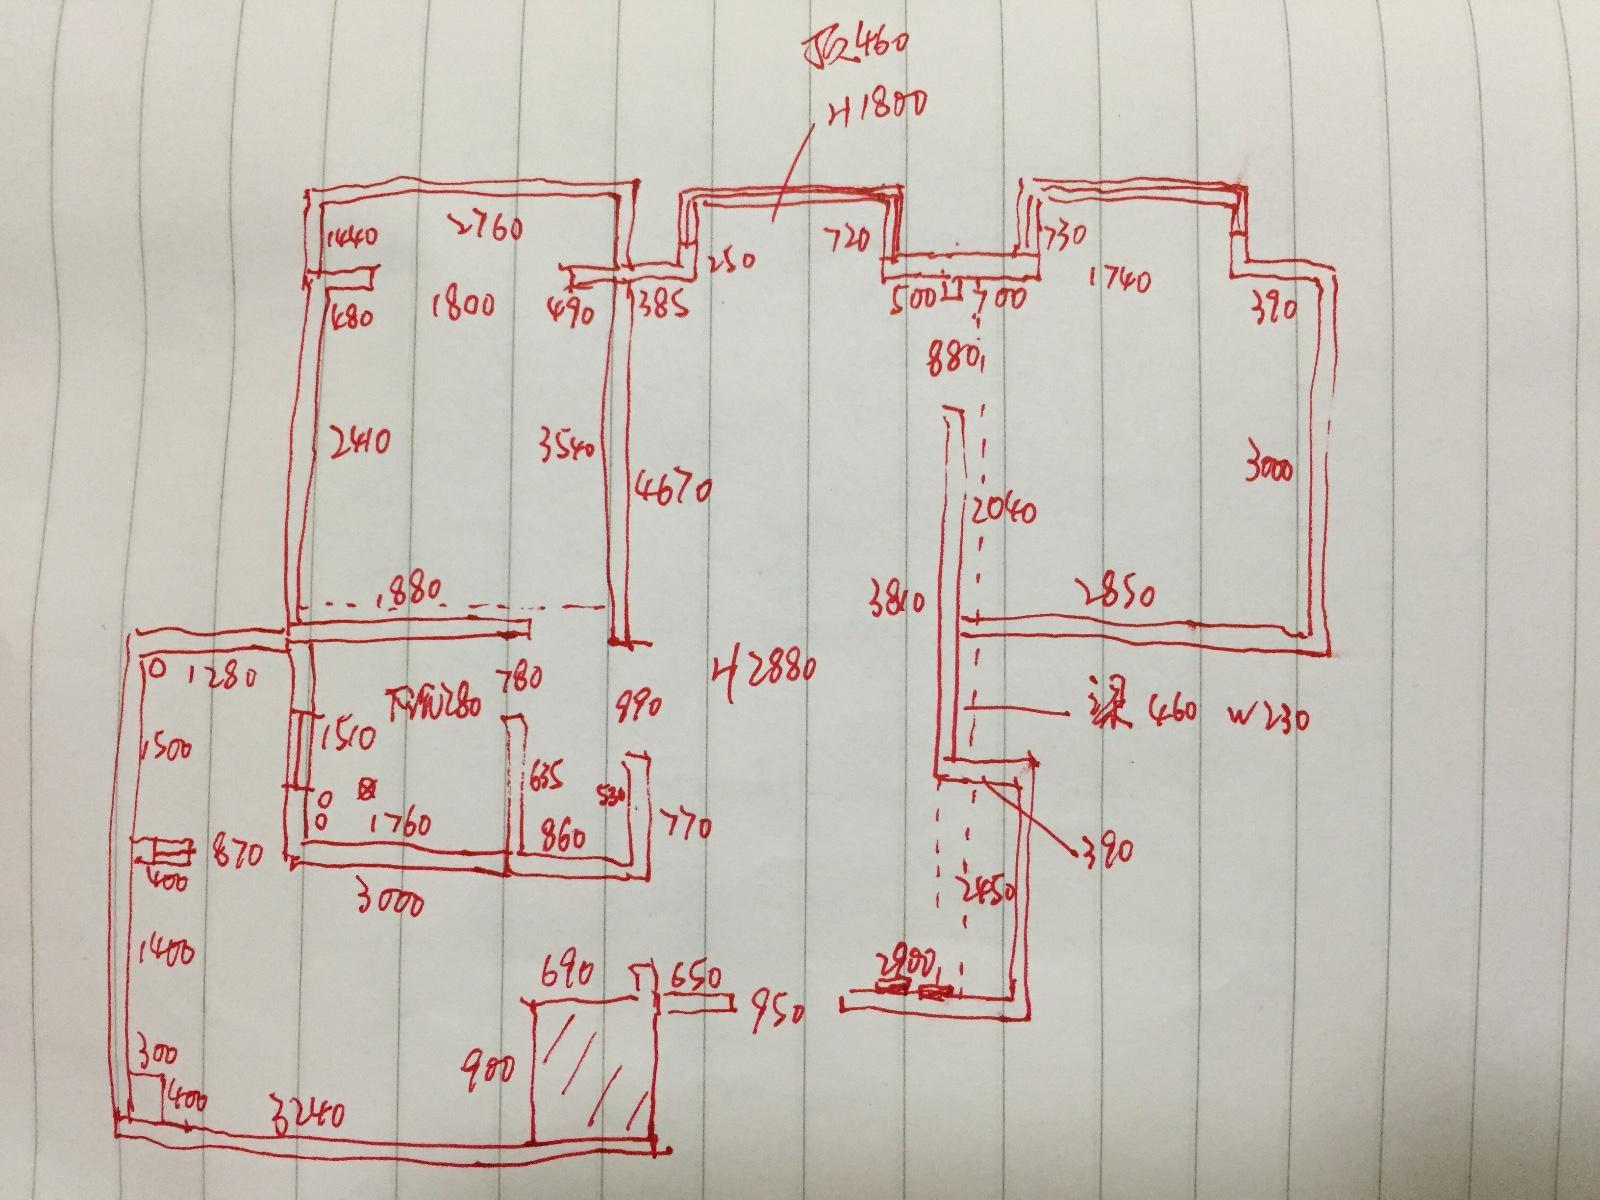 顶460
H1800
1440
2760
250
720
730
1740
480
1800
490
385
500
700
390
880
2410
3540
4670
2040
3000
1880
3810
2850
1280
780
H2880
下沉280
990
梁 460 W230
1500
1510
635
530
1760
860
770
870
400
390
3000
2450
1400
690
650
2900
950
300
900
400
3240